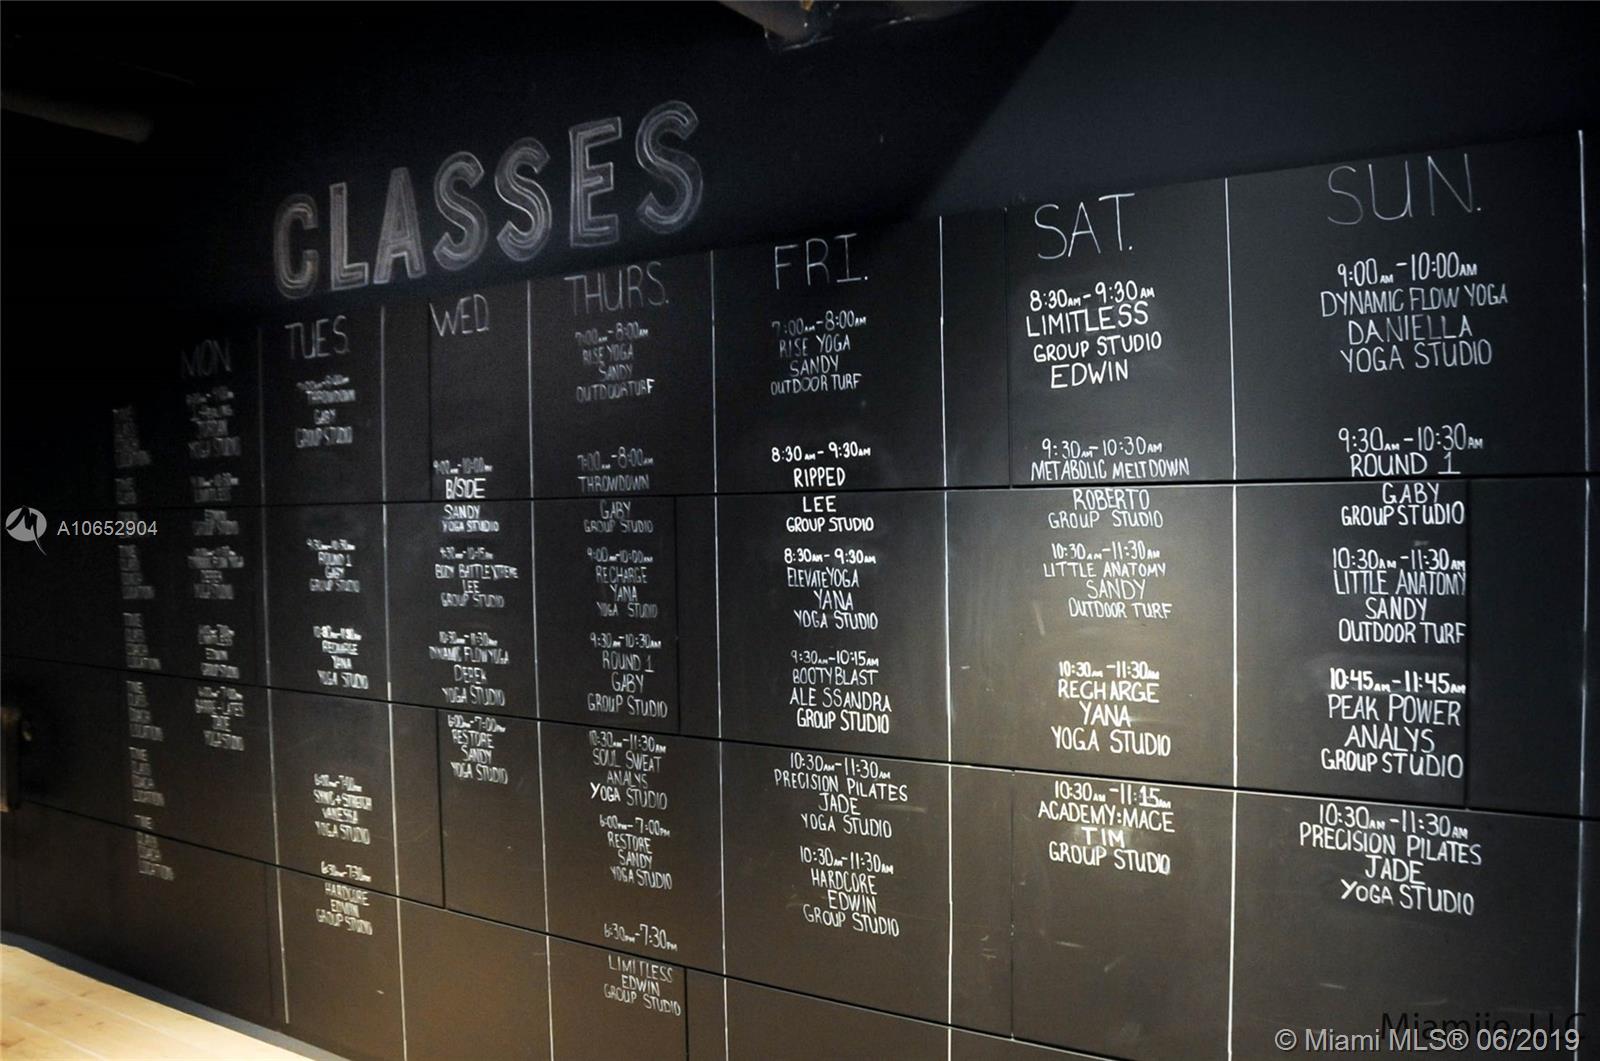 CLASSES
MON
TIME
CLASS
COACH
LOCATION
YOGA STUDIO
GROUP STUDIO
YOGA STUDIO
TUES.
THROWDOWN
GABY
GROUP STUDIO
9:30AM-10:30AM
ROUND 1
GABY
GROUP STUDIO
RECHARGE
YANA
YOGA STUDIO
6:00PM-7:00PM
SYNC+STRETCH
VANESSA
YOGA STUDIO
6:30PM-7:30PM
HARDCORE
EDWIN
GROUP STUDIO
WED.
9:00AM-10:00AM
B/SIDE
SANDY
YOGA STUDIO
9:30AM-10:15AM
BODY BATTLE XTREME
LEE
GROUP STUDIO
10:30AM-11:30AM
DYNAMIC FLOW YOGA
DEREK
YOGA STUDIO
6:00PM-7:00PM
RESTORE
SANDY
YOGA STUDIO
THURS.
7:00AM-8:00AM
RISE YOGA
SANDY
OUTDOOR TURF
7:00AM-8:00AM
THROWDOWN
GABY
GROUP STUDIO
9:00AM-10:00AM
RECHARGE
YANA
YOGA STUDIO
9:30AM-10:30AM
ROUND 1
GABY
GROUP STUDIO
10:30AM-11:30AM
SOUL SWEAT
ANALYS
YOGA STUDIO
6:00PM-7:00PM
RESTORE
SANDY
YOGA STUDIO
6:30PM-7:30PM
LIMITLESS
EDWIN
GROUP STUDIO
FRI.
7:00AM-8:00AM
RISE YOGA
SANDY
OUTDOOR TURF
8:30AM-9:30AM
RIPPED
LEE
GROUP STUDIO
8:30AM-9:30AM
ELEVATE YOGA
YANA
YOGA STUDIO
9:30AM-10:15AM
BOOTY BLAST
ALESSANDRA
GROUP STUDIO
10:30AM-11:30AM
PRECISION PILATES
JADE
YOGA STUDIO
10:30AM-11:30AM
HARDCORE
EDWIN
GROUP STUDIO
SAT.
8:30AM-9:30AM
LIMITLESS
GROUP STUDIO
EDWIN
9:30AM-10:30AM
METABOLIC MELTDOWN
ROBERTO
GROUP STUDIO
10:30AM-11:30AM
LITTLE ANATOMY
SANDY
OUTDOOR TURF
10:30AM-11:30AM
RECHARGE
YANA
YOGA STUDIO
10:30AM-11:15AM
ACADEMY: MACE
TIM
GROUP STUDIO
SUN.
9:00AM-10:00AM
DYNAMIC FLOW YOGA
DANIELLA
YOGA STUDIO
9:30AM-10:30AM
ROUND 1
GABY
GROUP STUDIO
10:30AM-11:30AM
LITTLE ANATOMY
SANDY
OUTDOOR TURF
10:45AM-11:45AM
PEAK POWER
ANALYS
GROUP STUDIO
10:30AM-11:30AM
PRECISION PILATES
JADE
YOGA STUDIO
A10652904
Miamiie LLC
© Miami MLS® 06/2019